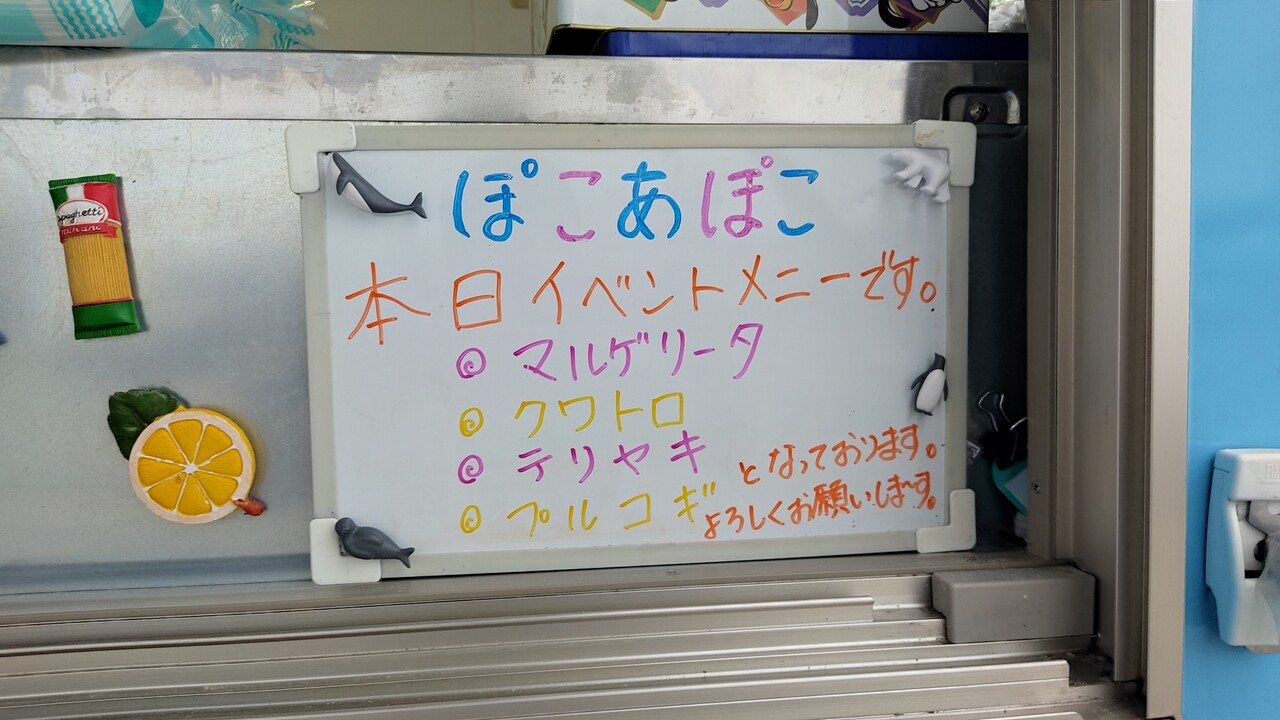 ぽこあぽこ
本日イベントメニーです。
◎ マルゲリータ
◎ クワトロ
◎ テリヤキ
◎ プルコギ
となっております。
よろしくお願いしま~す。
Spaghetti